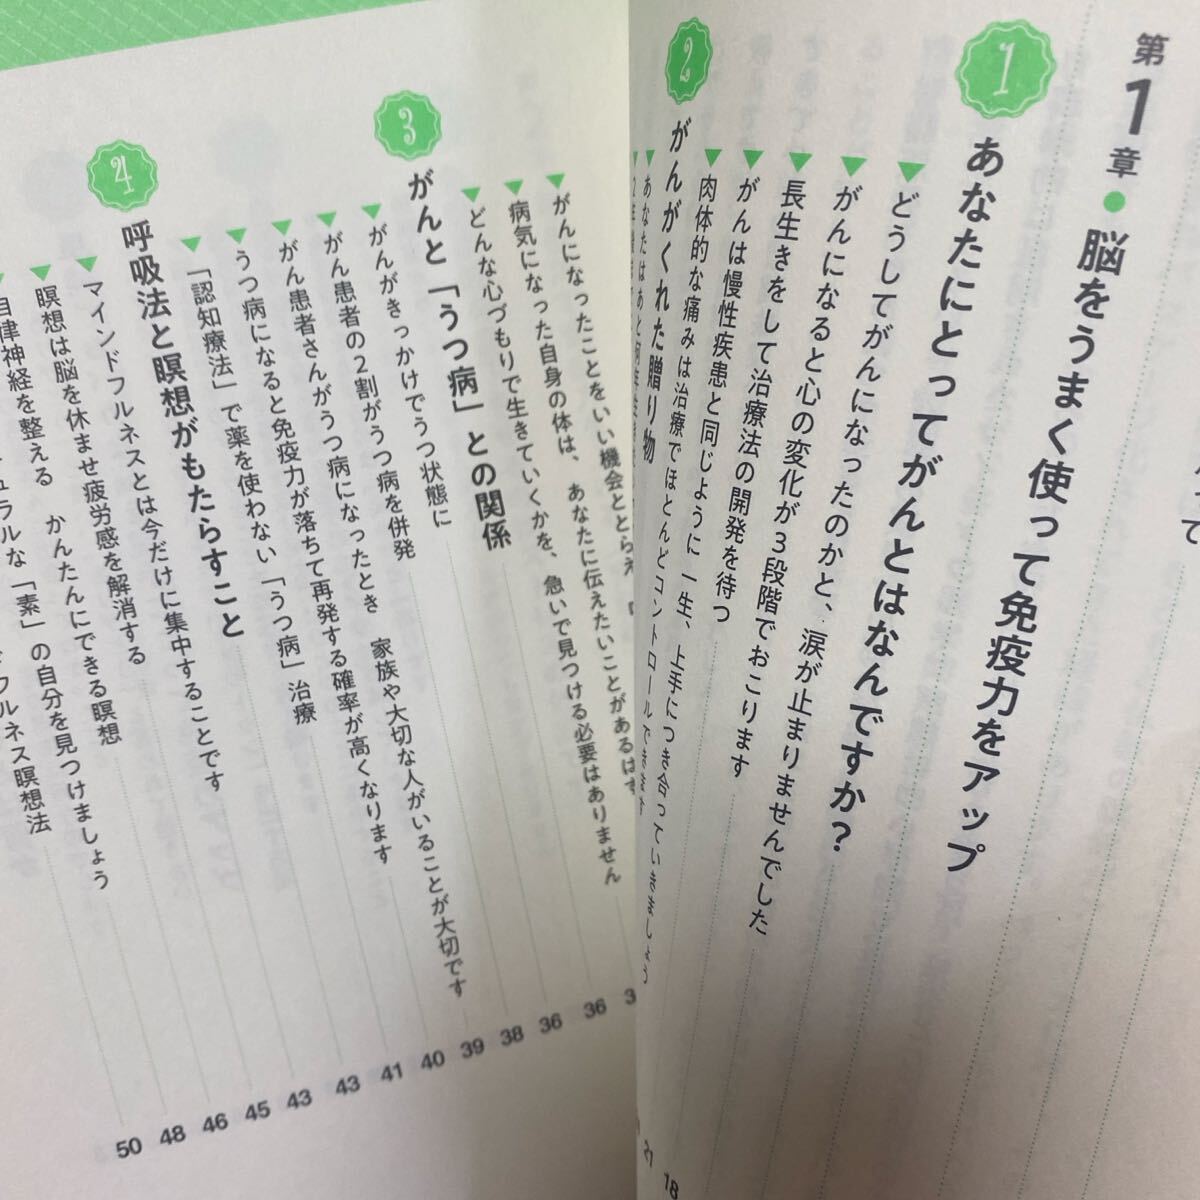 第1章●脳をうまく使って免疫力をアップ
1 あなたにとってがんとはなんですか？
▼どうしてがんになったのかと、涙が止まりませんでした
▼がんになると心の変化が３段階でおこります
▼長生きをして治療法の開発を待つ
▼がんは慢性疾患と同じように一生、上手につき合っていきましょう
▼肉体的な痛みは治療でほとんどコントロールできます
18
21
2 がんがくれた贈り物
▼あなたはあと何年
▼がんになったことをいい機会ととらえ
▼病気になった自身の体は、あなたに伝えたいことがあるはず
▼どんな心づもりで生きていくかを、急いで見つける必要はありません
3 がんと「うつ病」との関係
▼がんがきっかけでうつ状態に
▼がん患者の2割がうつ病を併発
▼がん患者さんがうつ病になったとき 家族や大切な人がいることが大切です
▼うつ病になると免疫力が落ちて再発する確率が高くなります
▼「認知療法」で薬を使わない「うつ病」治療
4 呼吸法と瞑想がもたらすこと
▼マインドフルネスとは今だけに集中することです
▼瞑想は脳を休ませ疲労感を解消する
▼自律神経を整える かんたんにできる瞑想
ュラルな「素」の自分を見つけましょう
フルネス瞑想法
36
36
38
39
40
41
43
43
45
46
48
50